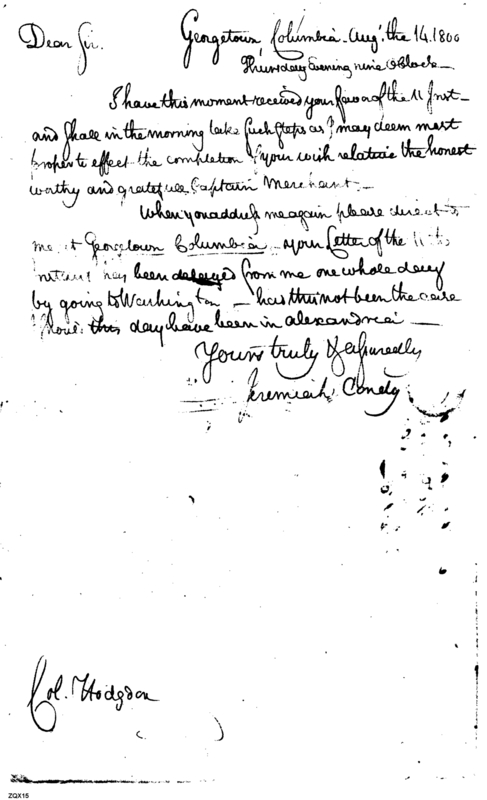 Dear Sir. Georgetown Columbia - Augt. the 14. 1800
Thursday Evening nine OClock -
I have this moment received your favor of the 11 Inst -
and Shall in the morning take Such Steps as I may deem most
proper to effect the completion of your wish relative to the honest
worthy and grateful Captain Merchant -
When you address me again please direct to
me at Georgetown Columbia - your Letter of the 11th
instant has been delayed from me one whole day
by going to Washington - has this not been the case
I this day have been in alexandria -
Yours truly & assuredly
Jeremiah Condy
Col. Hodgdon
ZQX15